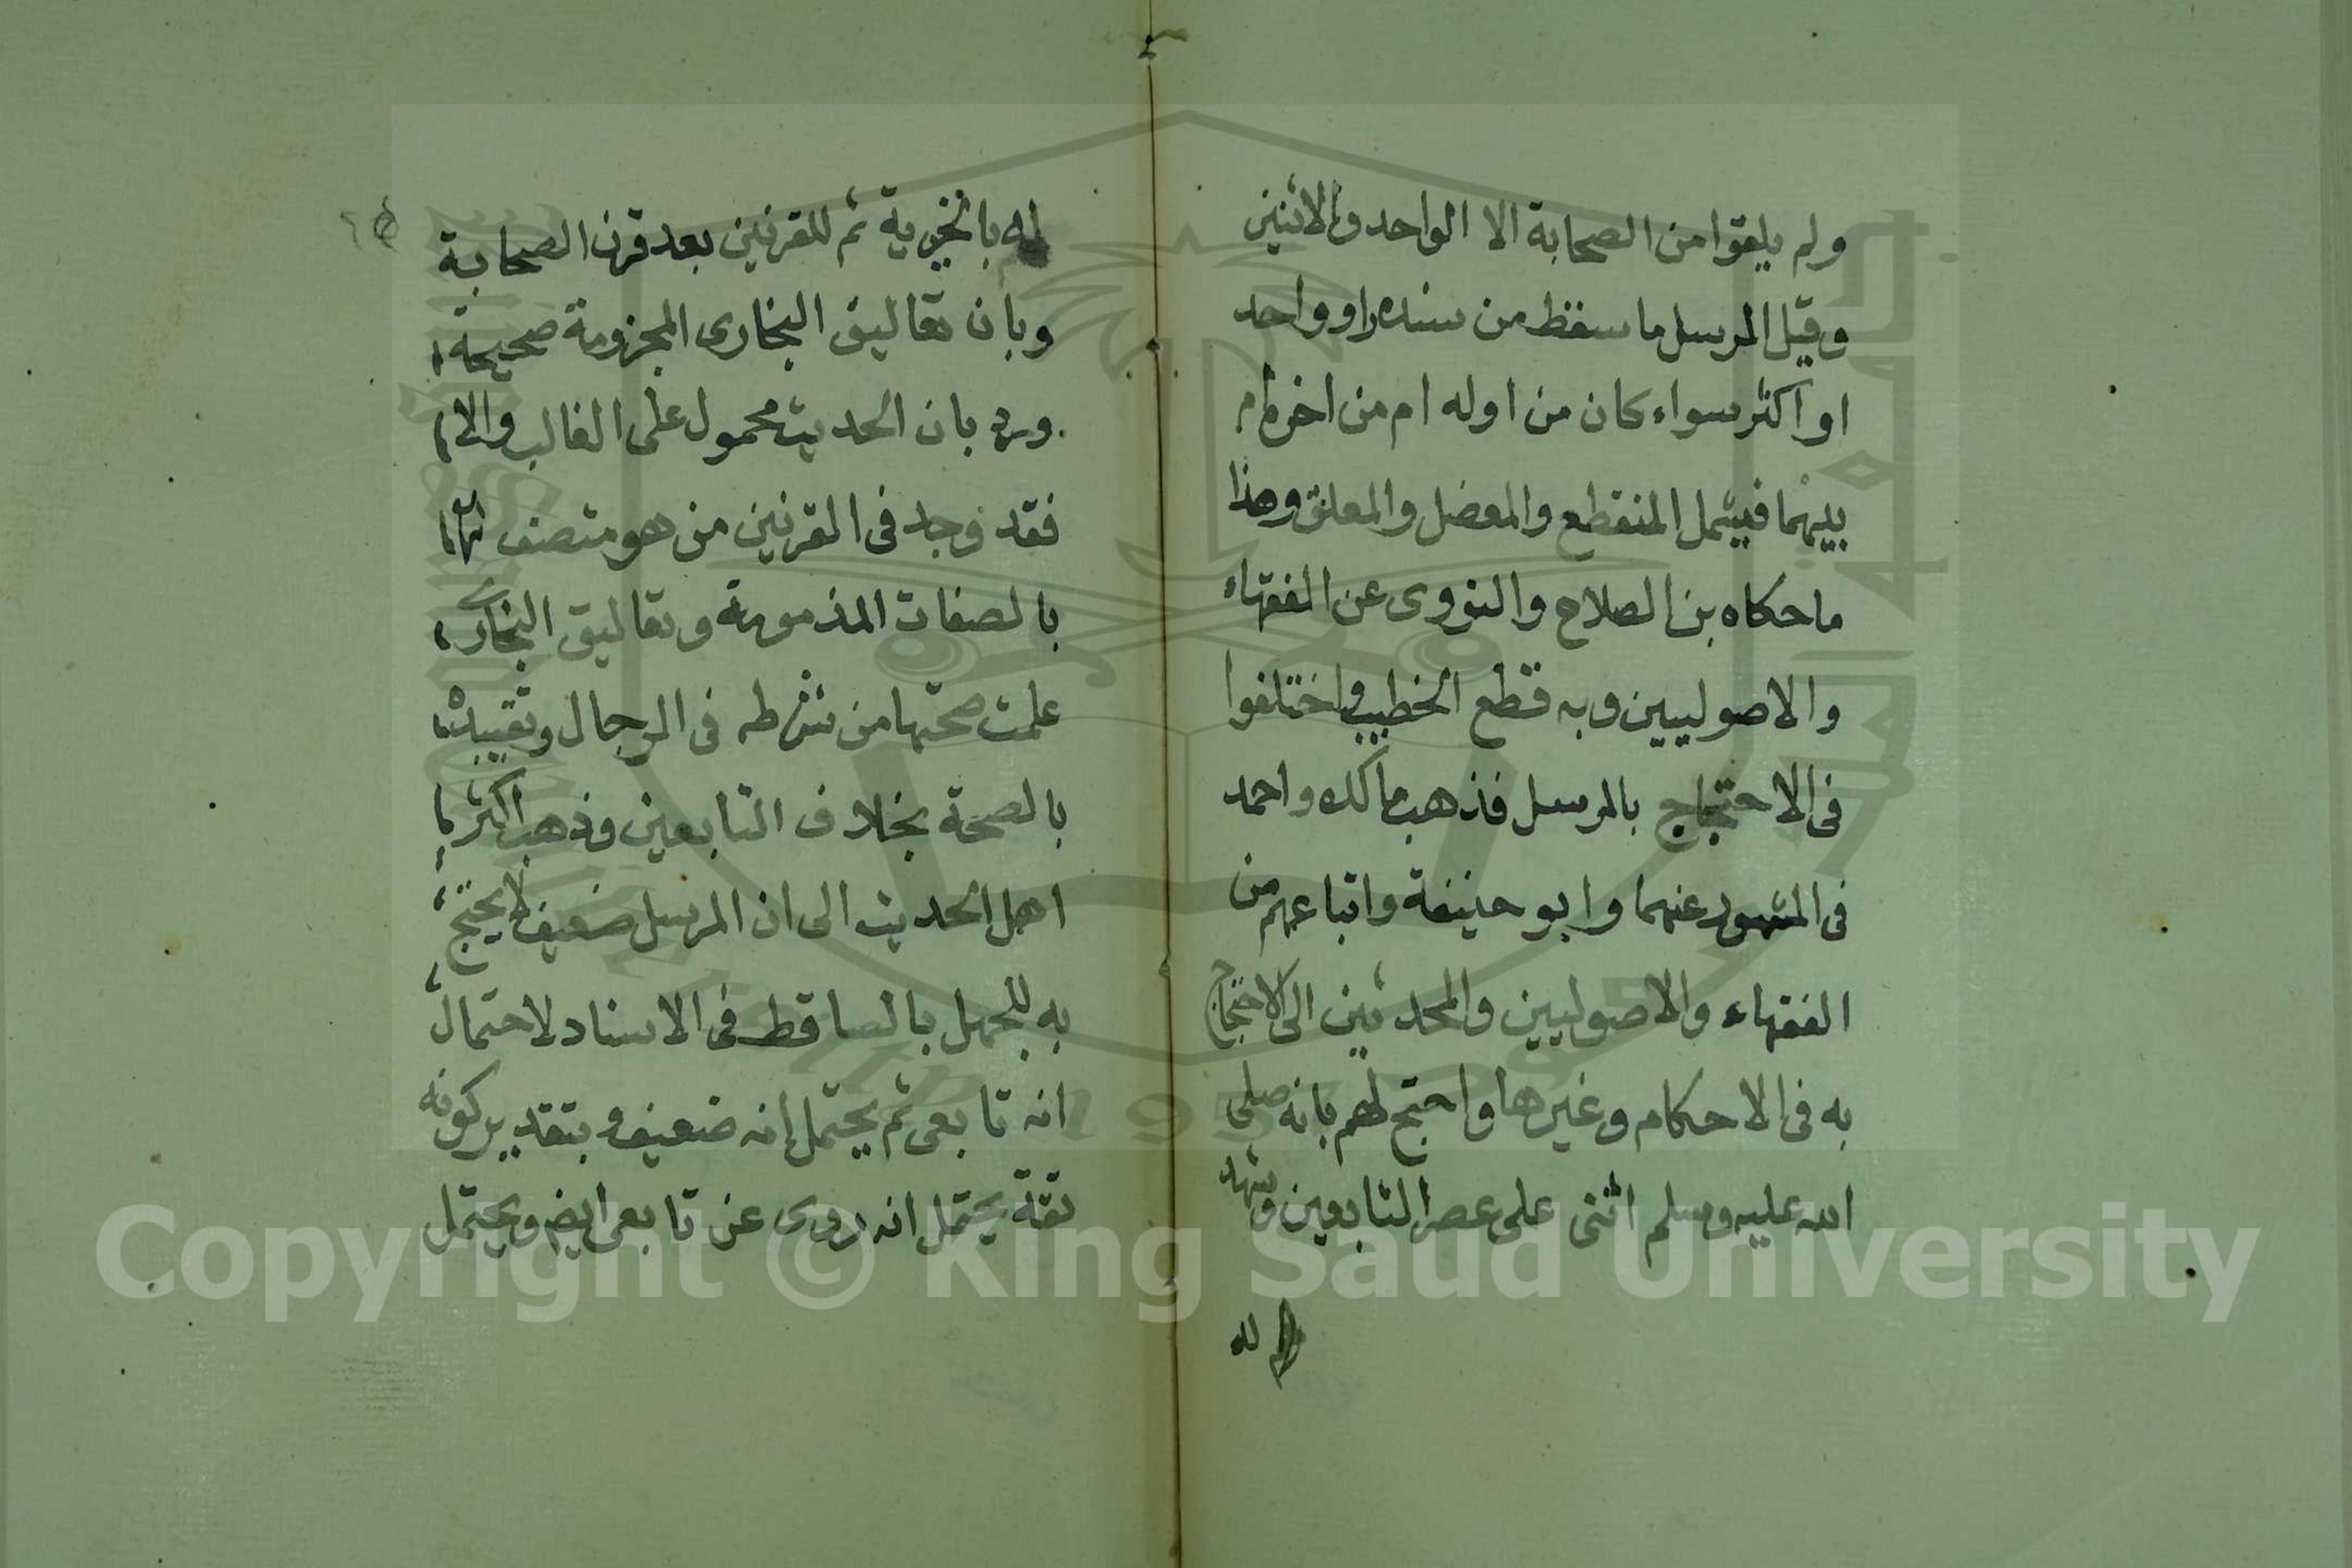 ولم يلقوا من الصحابة الا الواحد والاثنين
وقيل المرسل ما سقط من سنده راو واحد
او اكثر سواء كان من اوله ام من اخره ام
بينهما فيشمل المنقطع والمعضل والمعلق وهذا
ما حكاه بن الصلاح والنووى عن الفقهاء
والاصوليين وبه قطع الخطيب واختلفوا
فى الاحتجاج بالمرسل فذهب مالك واحمد
فى المشهور عنهما وابو حنيفة واتباعهم من
الفقهاء والاصوليين والمحدثين الى الاحتجاج
به فى الاحكام وغيرها واحتج لهم بانه صلى
الله عليه وسلم اثنى على عصر التابعين وشهد
له
له بالخيرية ثم للقرنين بعد قرن الصحابة
وبان تعاليق البخارى المجزومة صحيحة
ورد بان الحديث محمول على الغالب والا
فقد وجد فى القرنين من هو متصف
بالصفات المذمومة وتعاليق البخارى
علمت صحتها من شرطه فى الرجال وتقييده
بالصحة بخلاف التابعين وذهب اكثر
اهل الحديث الى ان المرسل ضعيف لا يحتج
به للجهل بالساقط فى الاسناد لاحتمال
انه تابعى ثم يحتمل انه ضعيف وبتقدير كونه
ثقة يحتمل انه روى عن تابعى ايض ويحتمل
Copyright © King Saud University